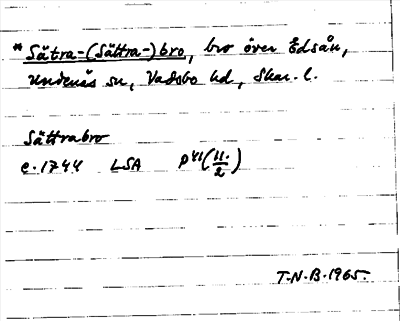 * Sätra-(Sättra-)bro, bro över Edsån,
Undenäs sn, Vadsbo hd, Skar. l.
Sättrabro
c. 1744 LSA P41(11:/2)
T.N.B. 1965.